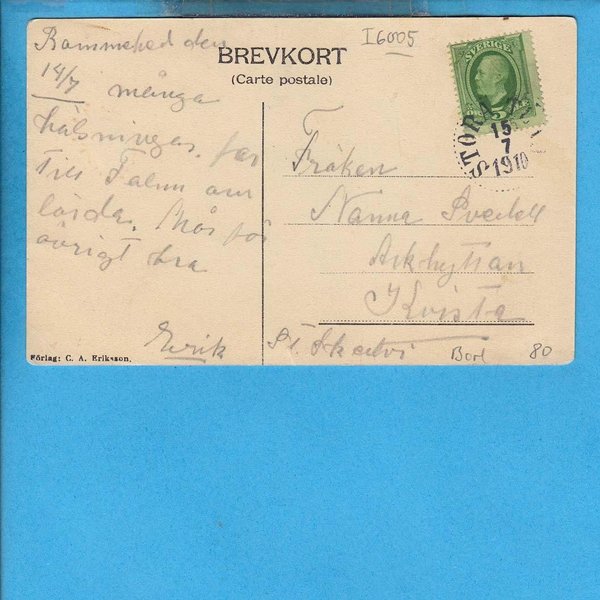 I6005
BREVKORT
(Carte postale)
SVERIGE
5
STORA
15
7
1910
Rommehed den
14/7 många
hälsningar. far
till Falun om
lörda. Mår för
övrigt bra
Erik
Förlag: C. A. Eriksson.
Fröken
Nanna Svedell
Arkhyttan
Kvista
St. Skedvi
Borl 80